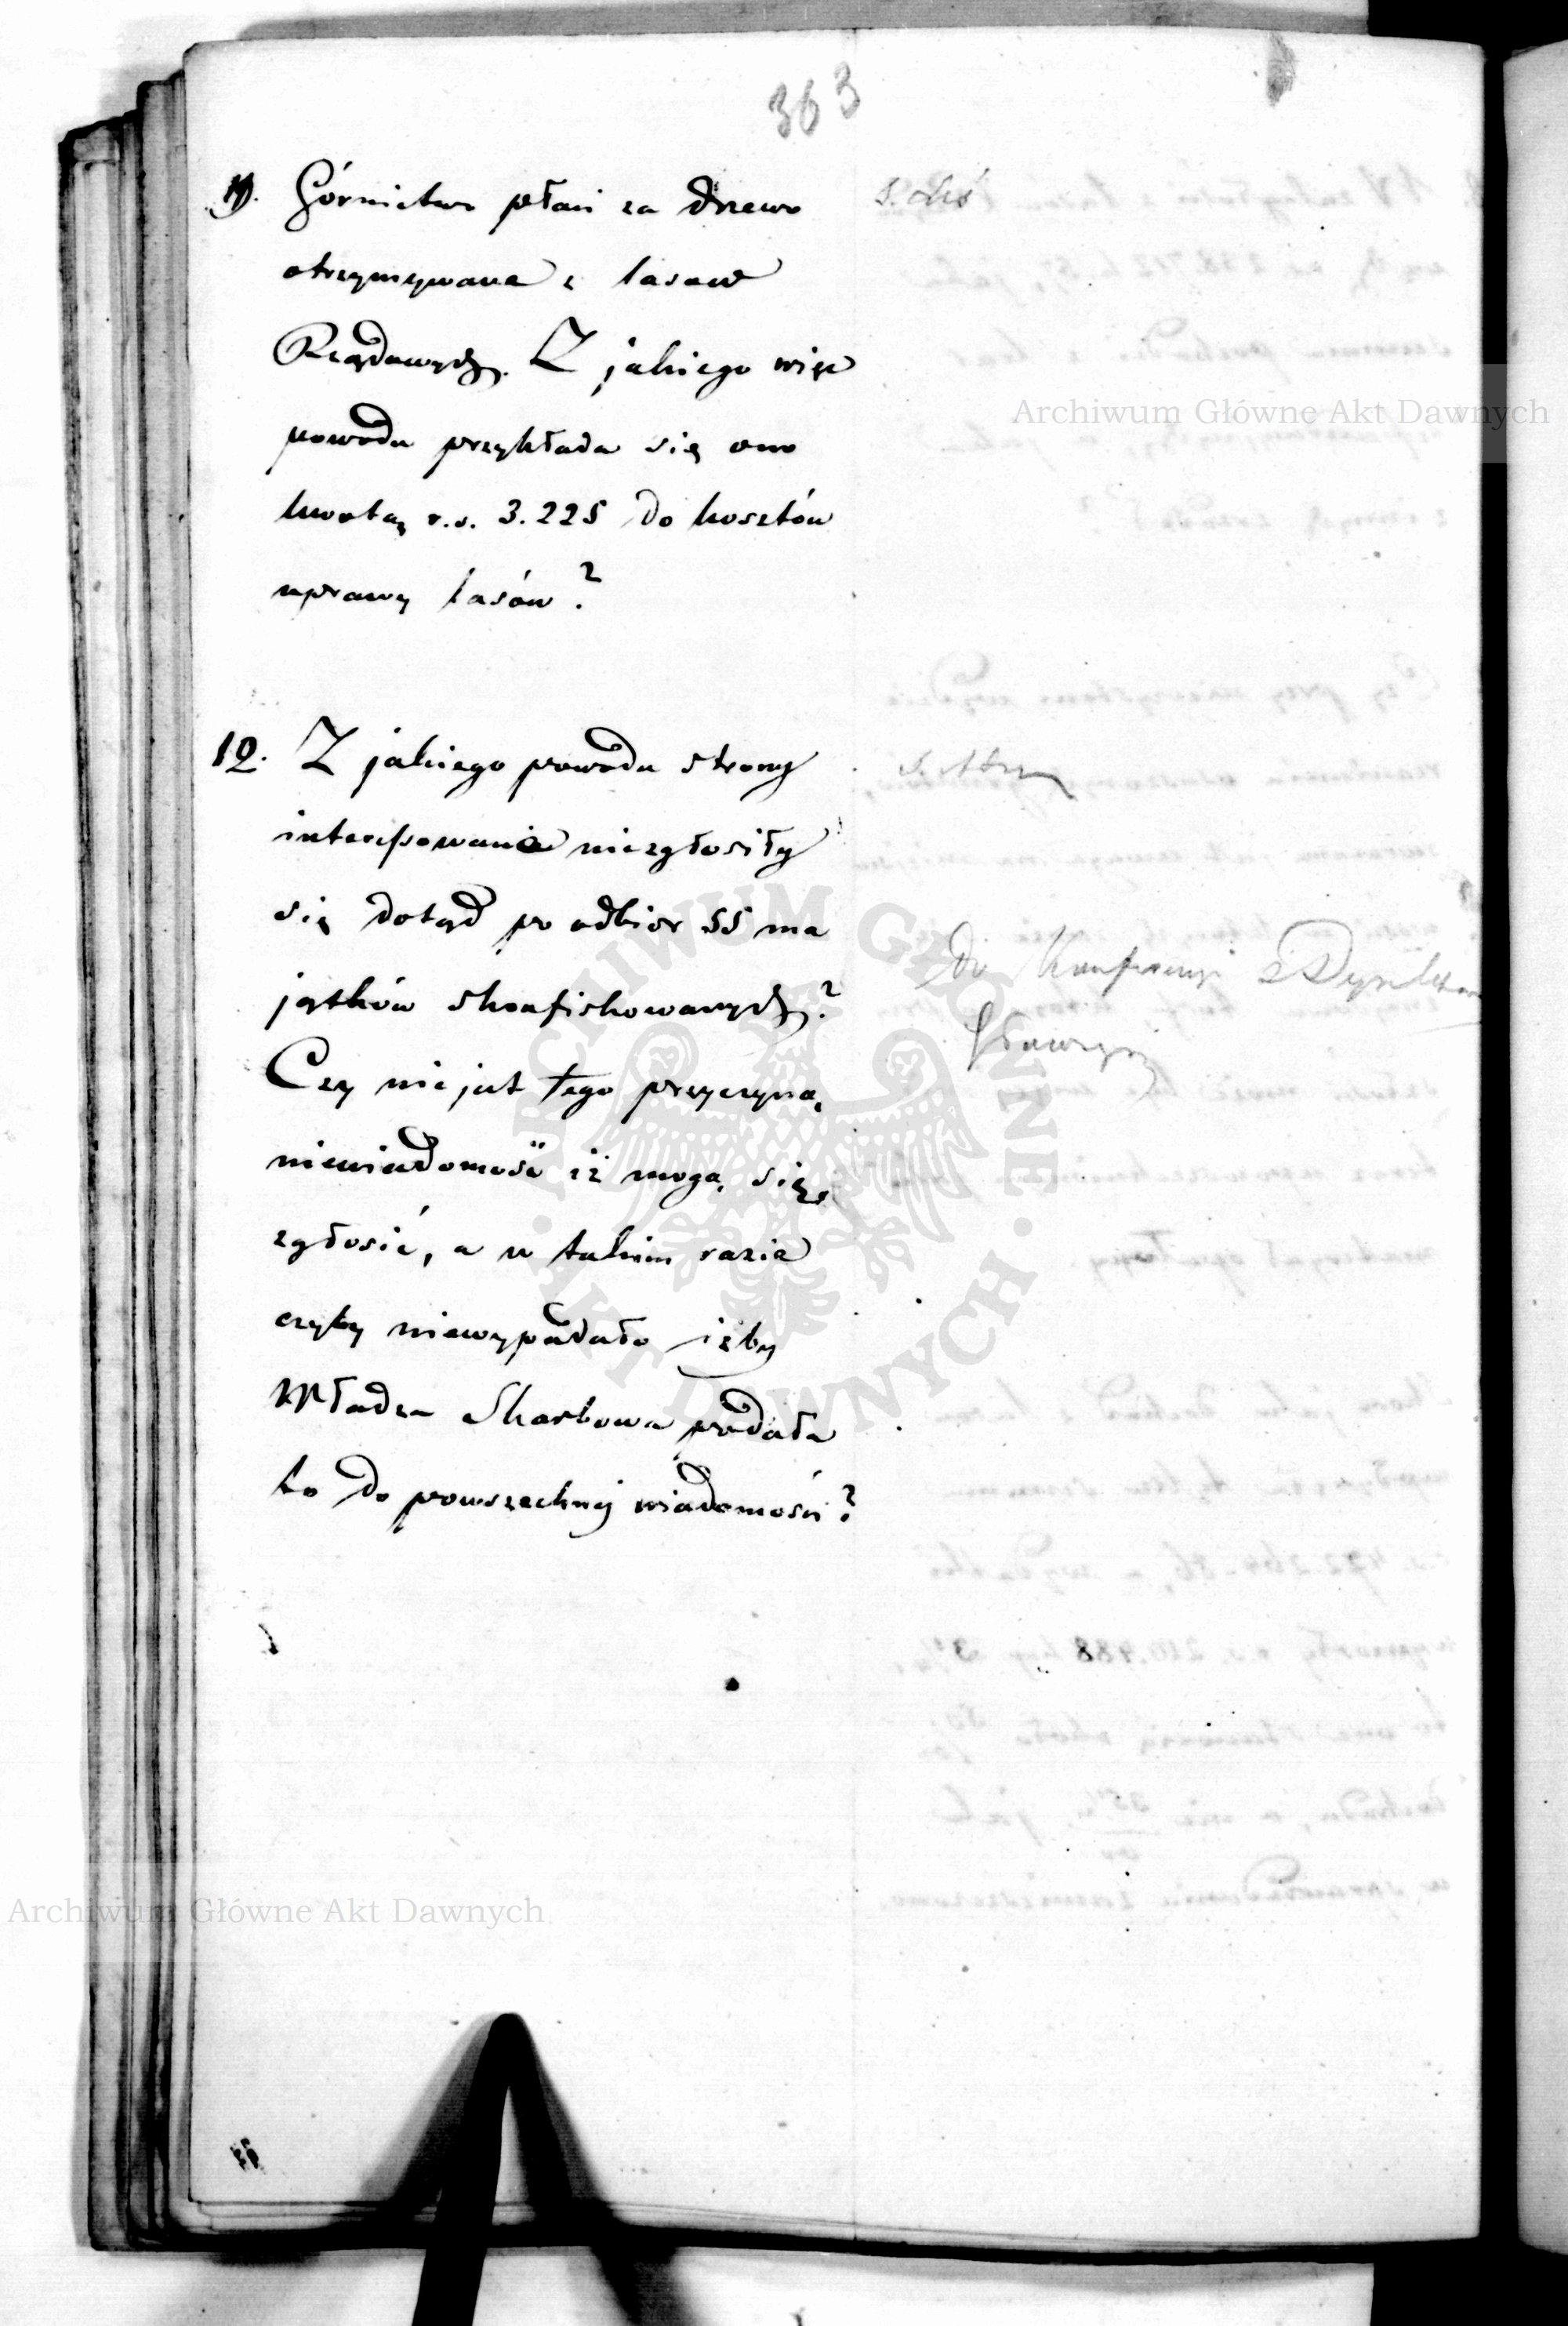 363
11. Górnictwo płaci za drzewo
otrzymywane z lasów
Rządowych. Z jakiego więc
powodu przykłada się ono
kwotą r.s. 3.225 do kosztów
uprawy lasów?
12. Z jakiego powodu strony
interesowane niezgłosiły
się dotąd po odbior 55 ma
jątków skonfiskowanych?
Czy nie jest tego przyczyną
niewiadomość iż mogą się
zgłosić, a w takim razie
czyby niewypadało iżby
Władza Skarbowa podała
to do powszechnej wiadomości?
do Konferencyi z Dyrektorem
Głównym
Archiwum Główne Akt Dawnych
ARCHIWUM GŁÓWNE AKT DAWNYCH
Archiwum Główne Akt Dawnych